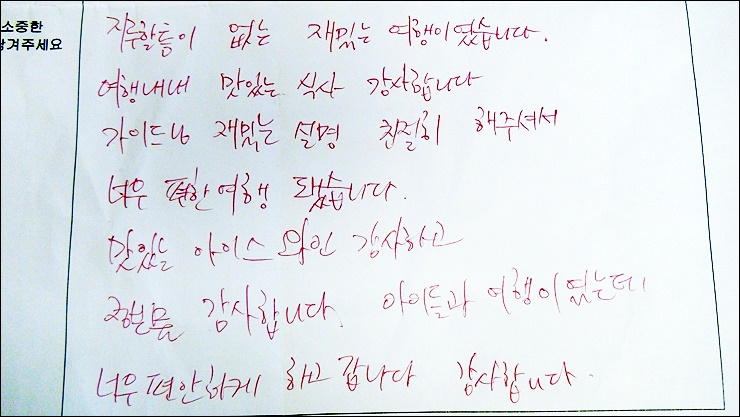 소중한
남겨주세요
지루할틈이 없는 재밌는 여행이였습니다.
여행내내 맛있는 식사 감사합니다
가이드님 재밌는 설명 친절히 해주셔서
너무 편한여행 됐습니다.
맛있는 아이스 와인 감사하고
감사합니다. 아이들과 여행이였는데
너무편안하게 하고갑니다 감사합니다.